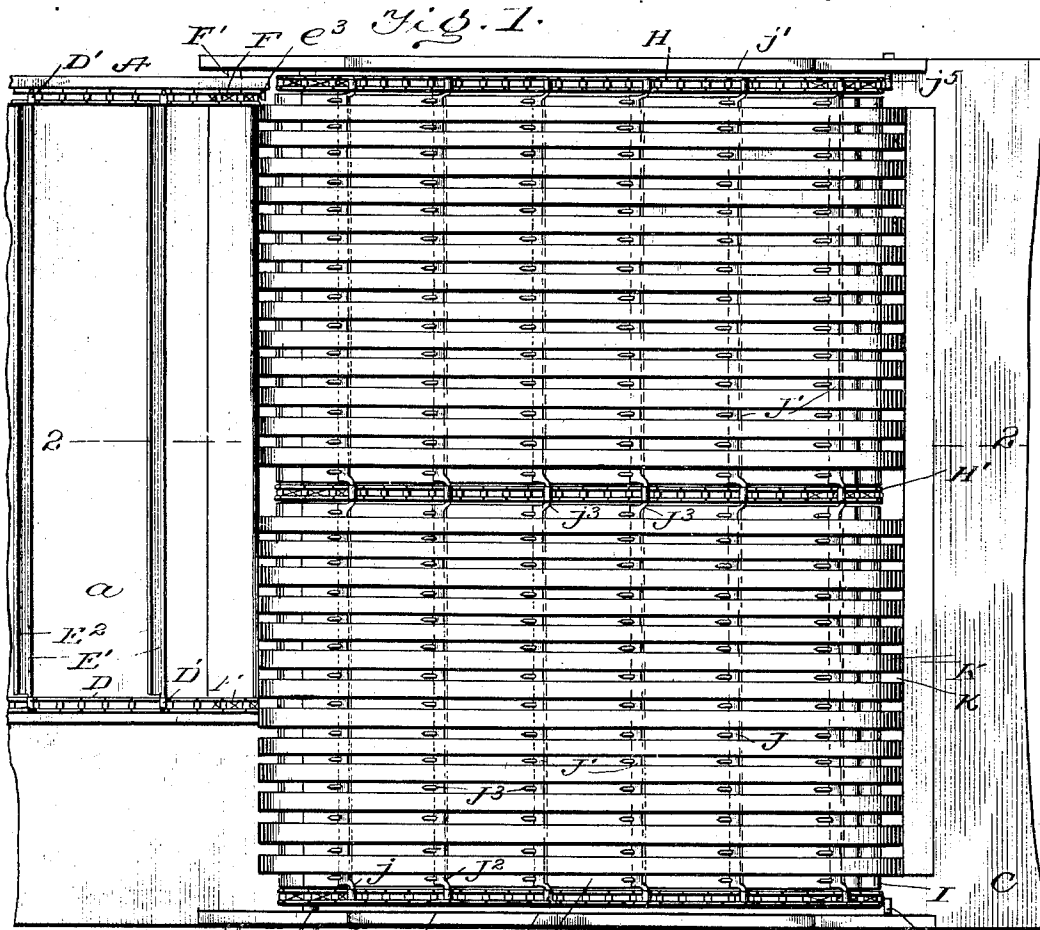 Fig. 1.
F' F e³ H j'
D' A j⁵
J'
2 2
H'
j³ J³
a
E²
E' K'
D D' F' K
J
J'
J³
j J² I C